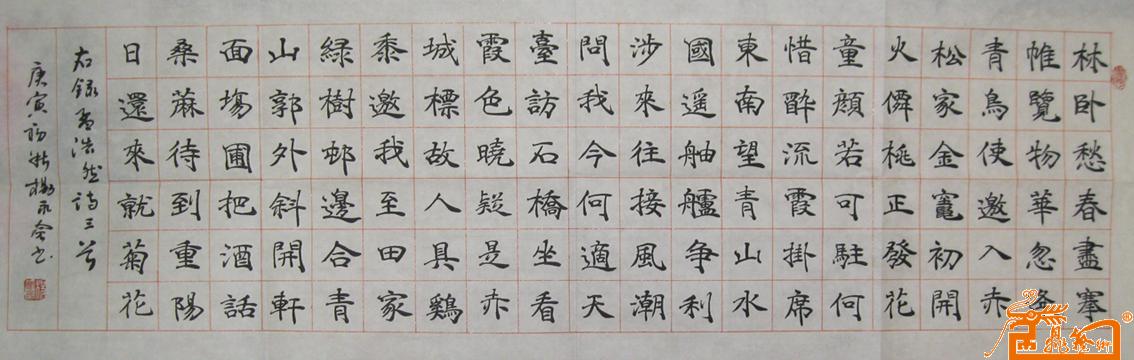 林卧愁春盡搴
帷覽物華忽逢
青鳥使邀入赤
松家金竈初開
火僊桃正發花
童顔若可駐何
惜醉流霞掛席
東南望青山水
國遥舳艫争利
涉來往接風潮
問我今何適天
臺訪石橋坐看
霞色曉疑是赤
城標故人具鷄
黍邀我至田家
緑樹邨邊合青
山郭外斜開軒
面塲圃把酒話
桑蔴待到重陽
日還來就菊花
右録孟浩然詩三首
庚寅 楊永 书